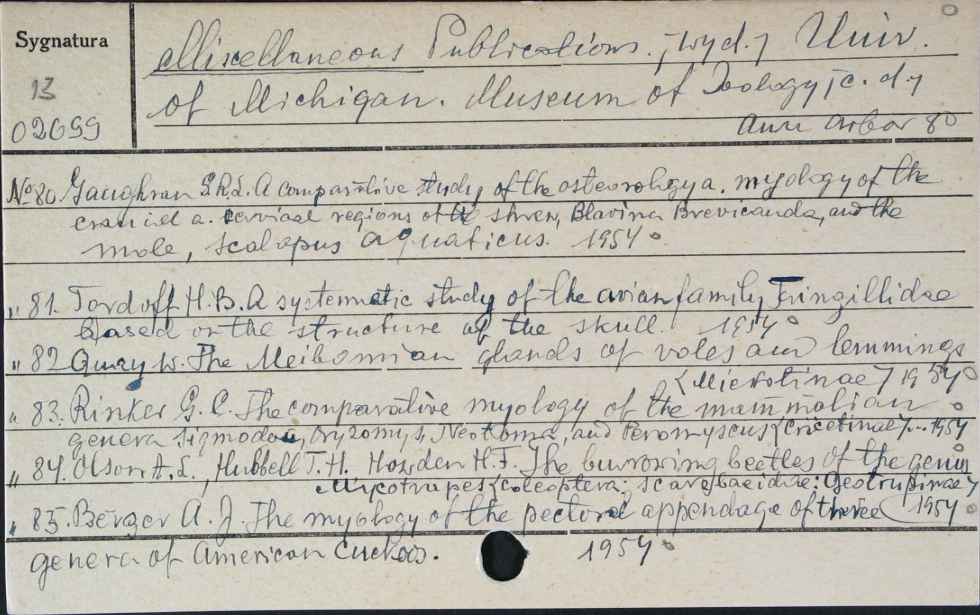 Sygnatura
13
02699
Miscellaneous Publications. [wyd.] Univ.
of Michigan. Museum of Zoology [c. d.]
Ann Arbor 80
No 80. Gaughran G.R.L. A comparative study of the osteorology a. myology of the
cranial a. cervical regions of the shrew, Blarina Brevicauda, and the
mole, Scalopus aquaticus. 1954
" 81. Tordoff H.B. A systematic study of the avian family Fringillidae
based on the structure of the skull. 1954
" 82 Quay W. The Meibomian glands of voles and lemmings
(Microtinae) 1954
" 83. Rinker G. C. The comparative myology of the mammalian
genera Sigmodon, Oryzomys, Neotoma, and Peromyscus (Cricetinae). 1954
" 84. Olson A. L., Hubbell T. H. Howden H. F. The burrowing beetles of the genus
Mycotrupes (Coleoptera: Scarabaeidae: Geotrupinae)
1954
" 85. Berger A. J. The myology of the pectoral appendage of three
genera of American Cuckoos. 1954